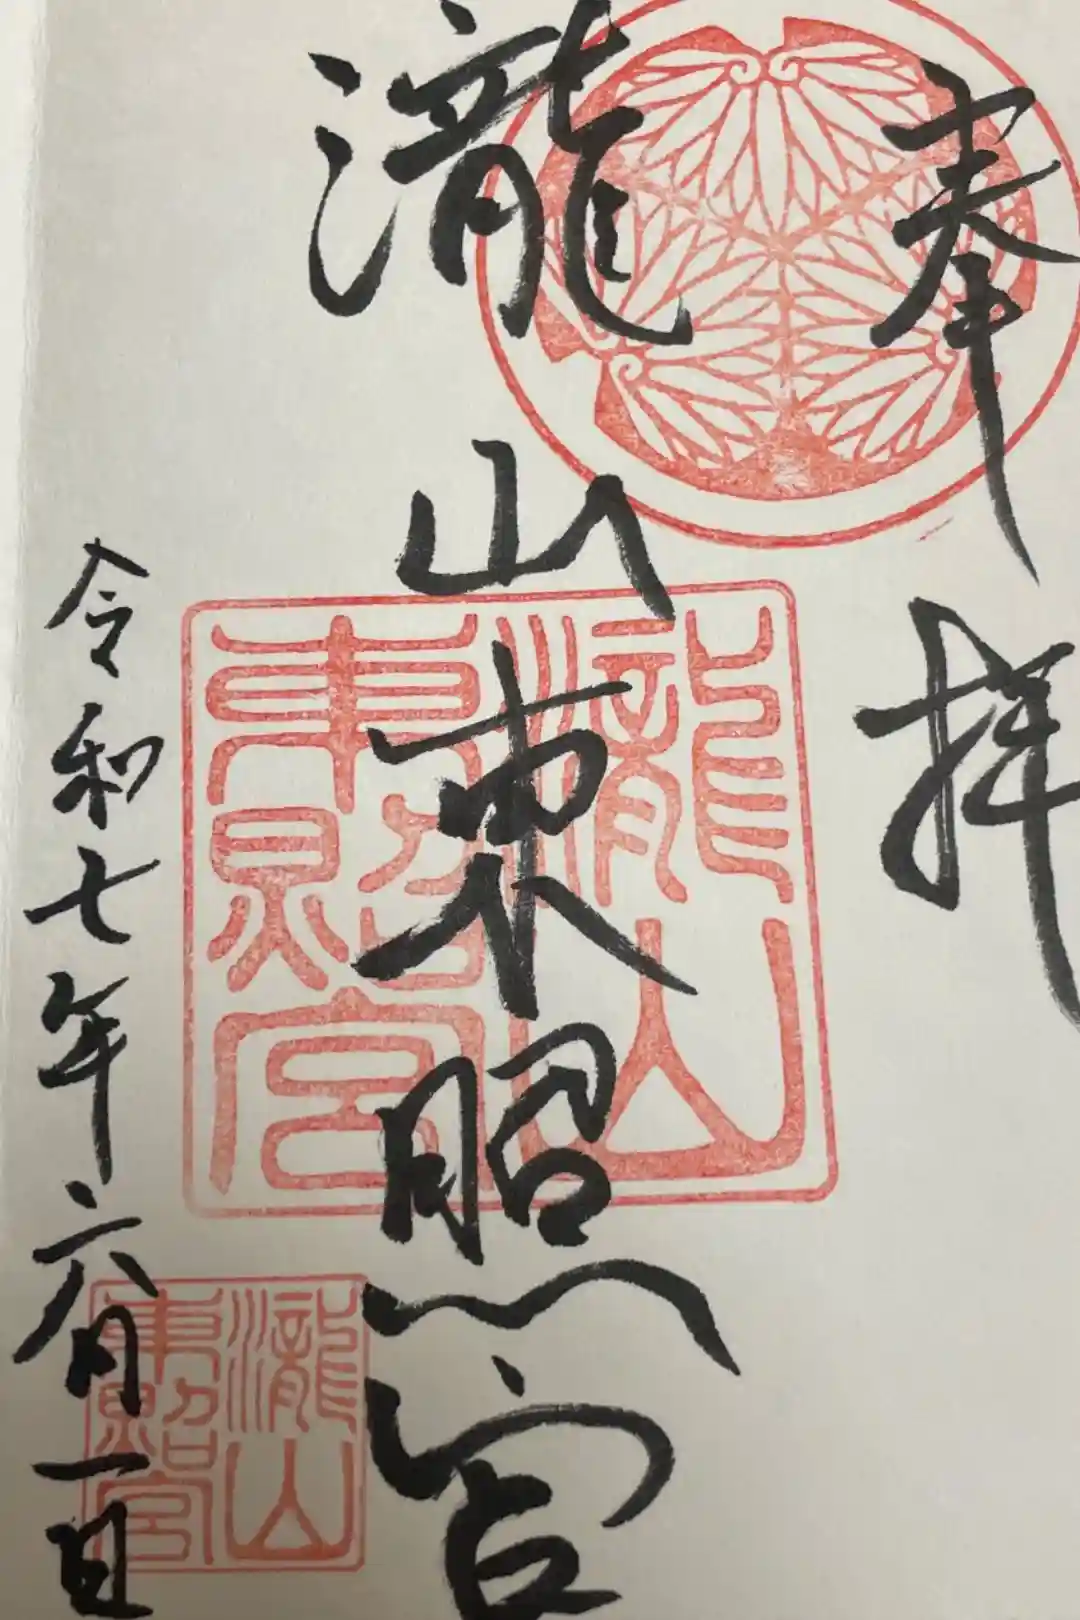 奉拝
瀧山東照宮
令和七年六月一日
瀧山
東照宮
瀧山
東照宮